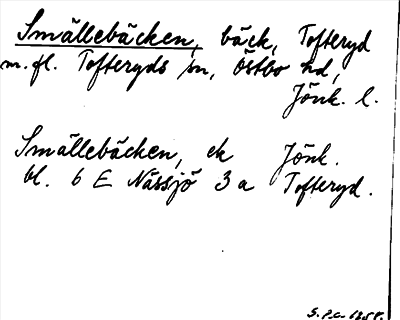 Smällebäcken, bäck, Tofteryd
m.fl. Tofteryds sn, Östbo hd,
Jönk. l.
Smällebäcken, ek Jönk.
bl. 6 E Nässjö 3 a Tofteryd.